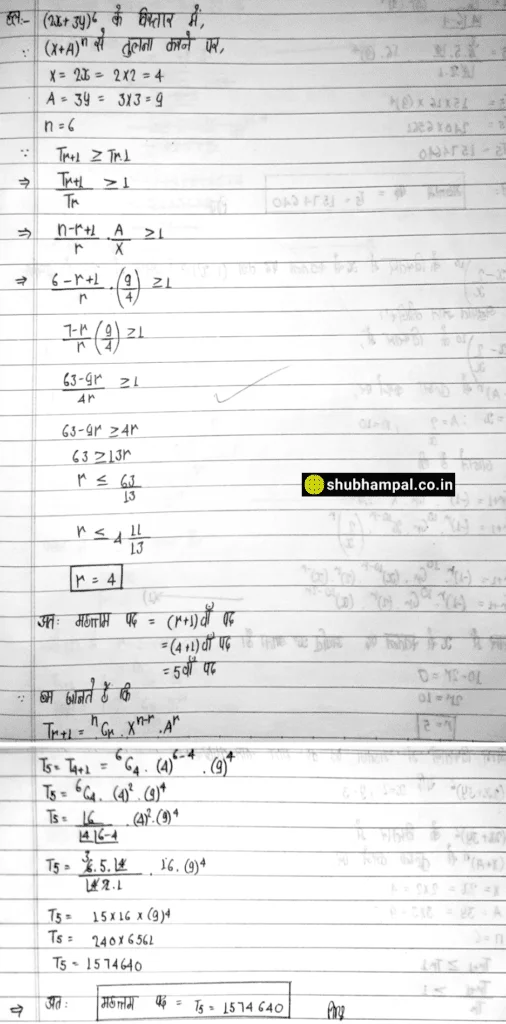 हल:- (2x+3y)⁶ के विस्तार में,
∵ (x+A)ⁿ से तुलना करने पर,
x = 2x = 2×2 = 4
A = 3y = 3×3 = 9
n = 6
∵ Tr+1 ≥ Tr
⇒ Tr+1/Tr ≥ 1
⇒ n-r+1/r . A/x ≥ 1
⇒ 6-r+1/r . (9/4) ≥ 1
7-r/r (9/4) ≥ 1
63-9r/4r ≥ 1
63-9r ≥ 4r
63 ≥ 13r
r ≤ 63/13
shubhampal.co.in
r ≤ 4 11/13
r = 4
अतः महत्तम पद = (r+1)वाँ पद
= (4+1)वाँ पद
= 5वाँ पद
∵ हम जानते हैं कि
Tr+1 = ⁿCr . X^n-r . A^r
T5 = T4+1 = ⁶C4 . (4)^6-4 . (9)⁴
T5 = ⁶C4 . (4)² . (9)⁴
T5 = |6/|4 |6-4 . (4)² . (9)⁴
T5 = 6.5.|4/|4 2.1 . 16. (9)⁴
T5 = 15×16×(9)⁴
T5 = 240×6561
T5 = 1574640
⇒ अतः महत्तम पद = T5 = 1574640